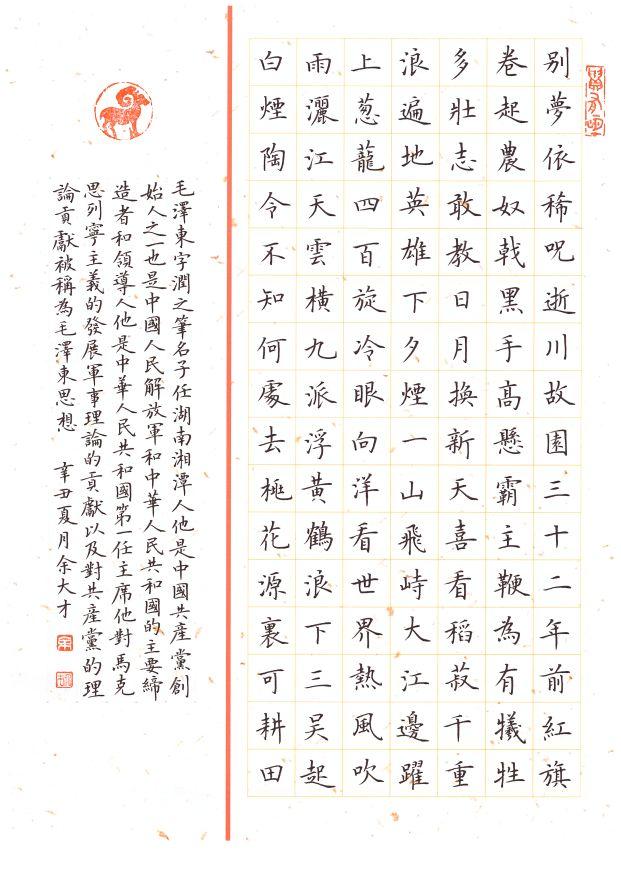 别夢依稀呪逝川故園三十二年前紅旗
卷起農奴戟黑手高懸霸主鞭為有犧牲
多壯志敢教日月換新天喜看稻菽千重
浪遍地英雄下夕煙一山飛峙大江邊躍
上葱蘢四百旋冷眼向洋看世界熱風吹
雨灑江天雲橫九派浮黃鶴浪下三吴起
白煙陶令不知何處去桃花源裏可耕田
毛澤東字潤之筆名子任湖南湘潭人他是中國共產黨創
始人之一也是中國人民解放軍和中華人民共和國的主要締
造者和領導人他是中華人民共和國第一任主席他對馬克
思列寧主義的發展軍事理論的貢獻以及對共產黨的理
論貢獻被稱為毛澤東思想 辛丑夏月余大才